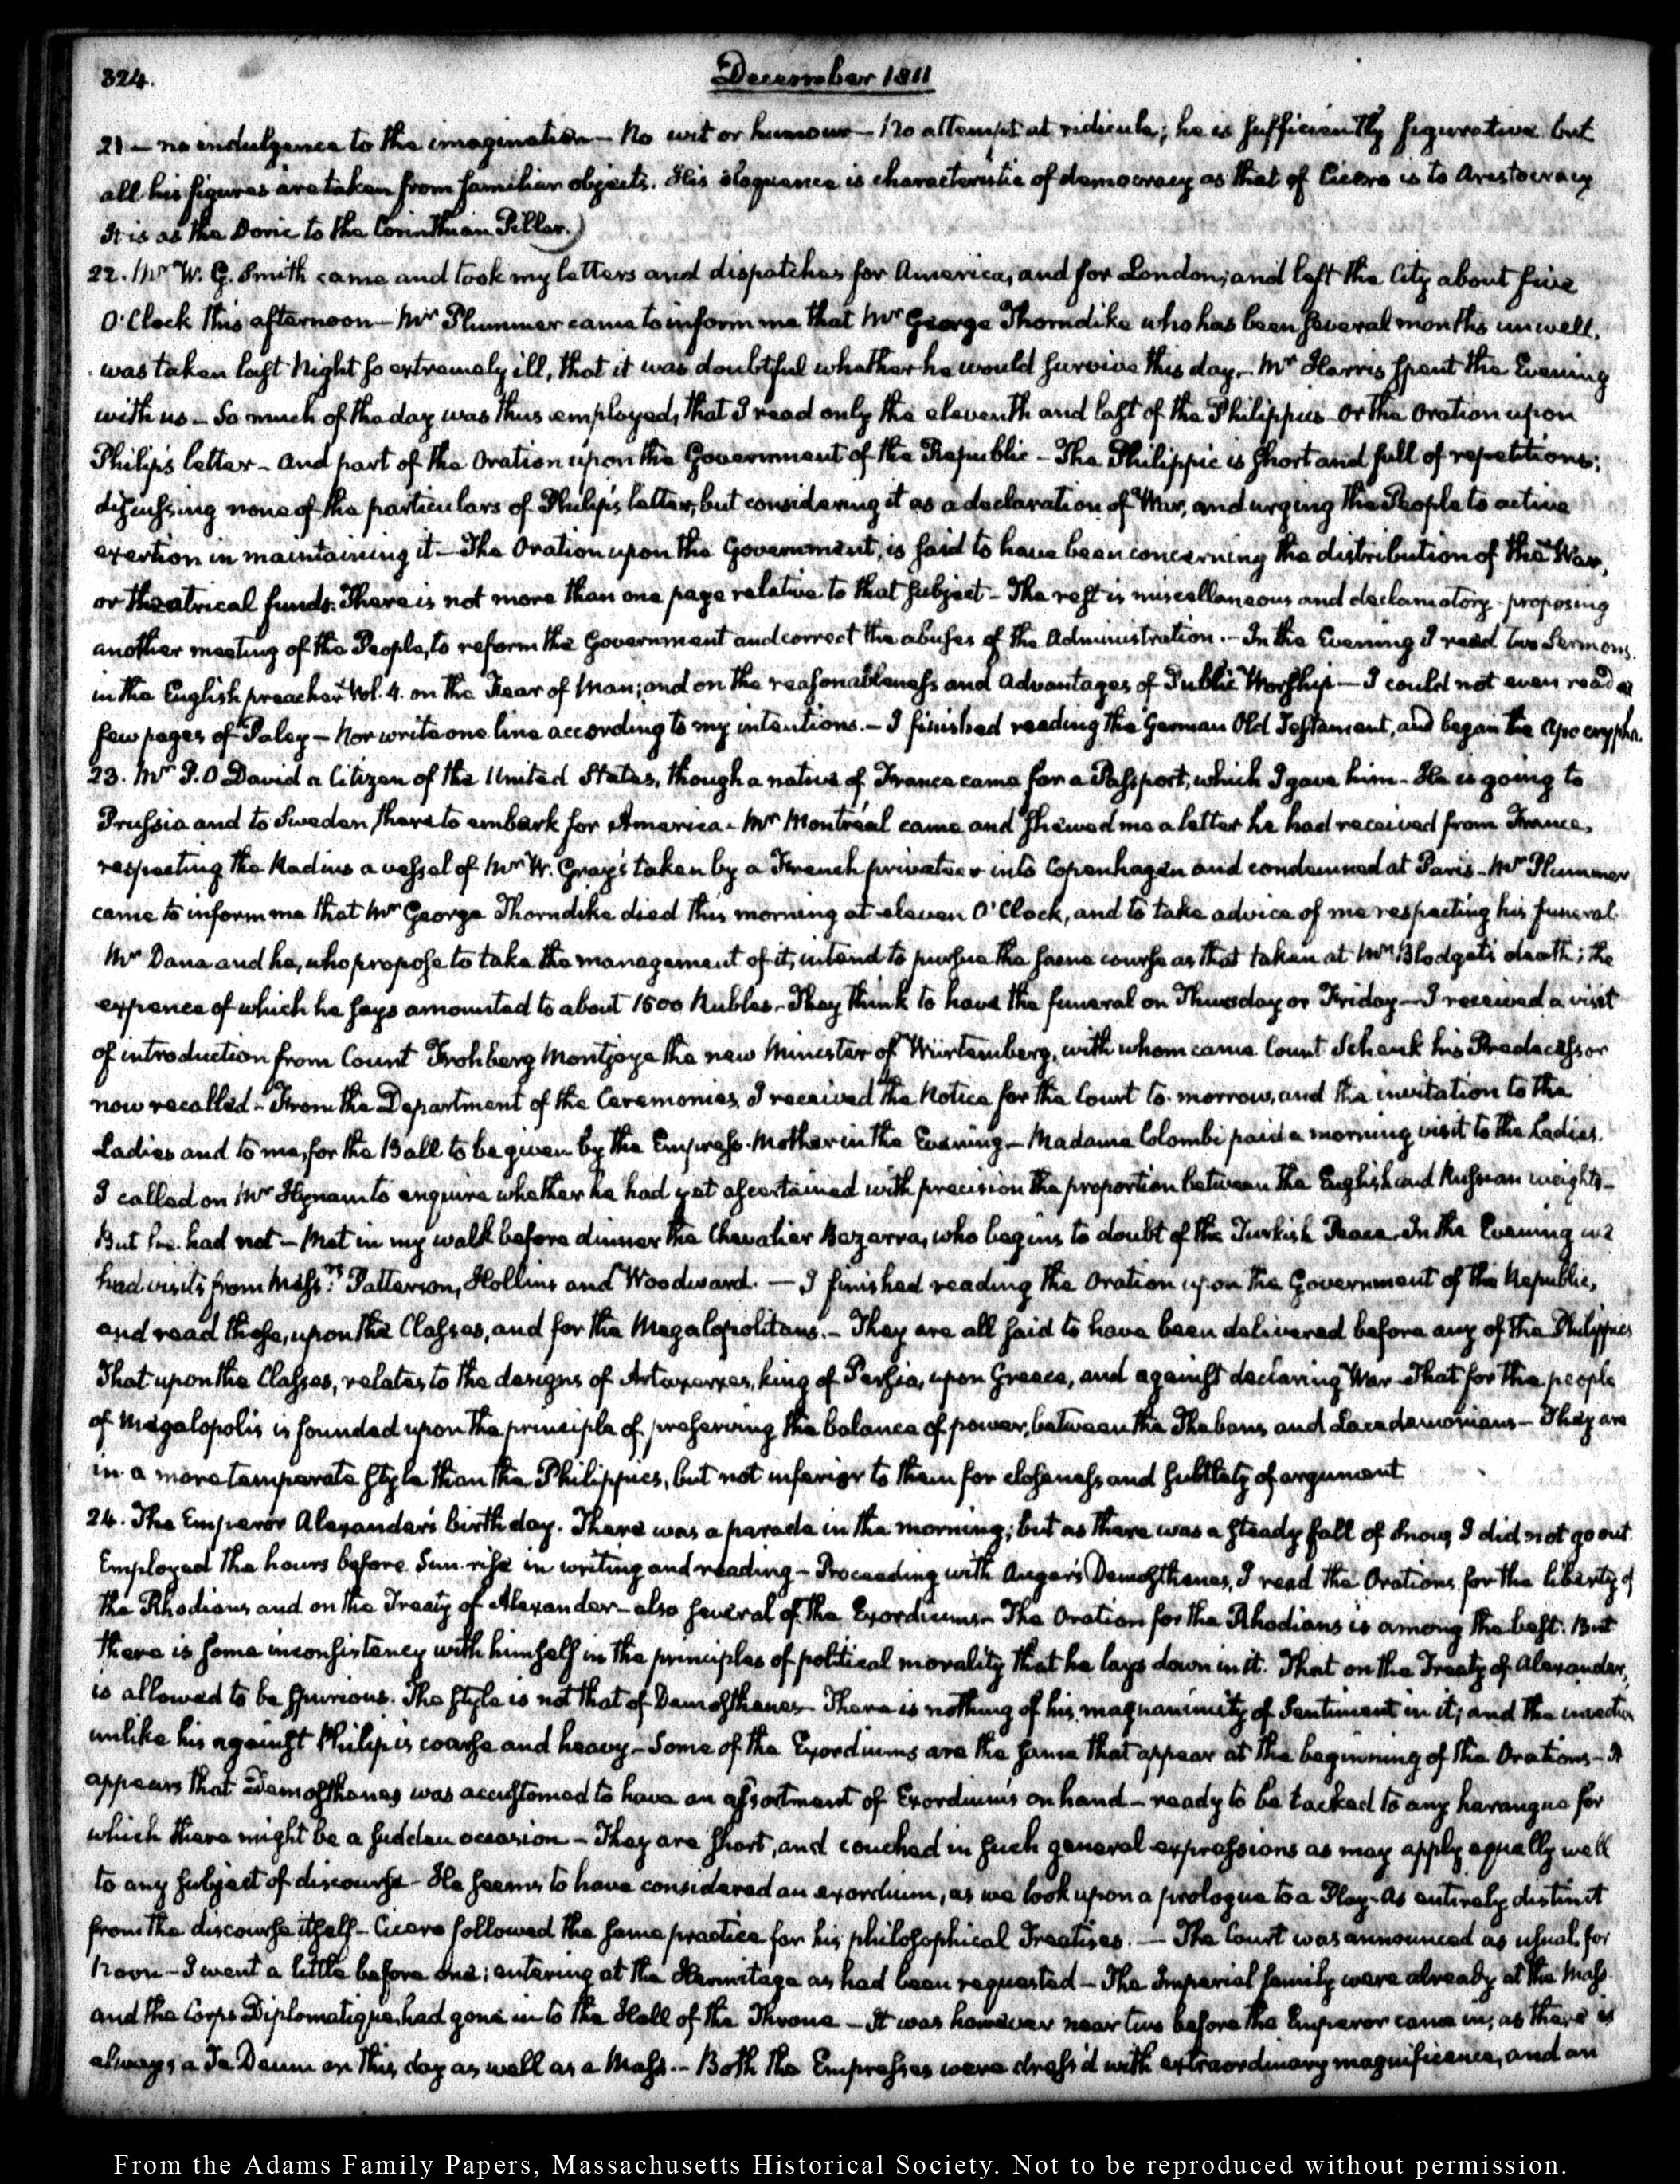 324.
December 1811
21 — no indulgence to the imagination — No wit or humour — No attempt at ridicule; he is sufficiently figurative but
all his figures are taken from familiar objects. His eloquence is characteristic of democracy as that of Cicero is to Aristocracy
It is as the Doric to the Corinthian Pillar.)
22. Mr W. G. Smith came and took my letters and dispatches for America, and for London; and left the City about five
O'Clock this afternoon — Mr Plummer came to inform me that Mr George Thorndike who has been several months unwell,
was taken last Night so extremely ill, that it was doubtful whether he would survive this day. Mr Harris spent the Evening
with us — So much of the day was thus employed, that I read only the eleventh and last of the Philippics or the Oration upon
Philip's letter — and part of the Oration upon the Government of the Republic — The Philippic is short and full of repetitions;
discussing none of the particulars of Philip's letter, but considering it as a declaration of War, and urging the People to active
exertion in maintaining it — The Oration upon the Government, is said to have been concerning the distribution of the War,
or theatrical funds. There is not more than one page relative to that subject — The rest is miscellaneous and declamatory proposing
another meeting of the People, to reform the Government and correct the abuses of the Administration. — In the Evening I read two Sermons
in the English preacher Vol. 4. on the Fear of Man; and on the reasonableness and Advantages of Public Worship — I could not even read a
few pages of Paley — Nor write one line according to my intentions. — I finished reading the German Old Testament, and began the Apocrypha.
23. Mr P. O David a Citizen of the United States, though a native of France came for a Passport, which I gave him — He is going to
Prussia and to Sweden, there to embark for America. Mr Montréal came and shewed me a letter he had received from France,
respecting the Radius a vessel of Mr W. Gray's taken by a French privateer into Copenhagen and condemned at Paris — Mr Plummer
came to inform me that Mr George Thorndike died this morning at eleven O'Clock, and to take advice of me respecting his funeral
Mr Dana and he, who propose to take the management of it, intend to pursue the same course as that taken at Mr Blodget's death; the
expence of which he says amounted to about 1500 Rubles. They think to have the funeral on Thursday or Friday — I received a visit
of introduction from Count Frohberg Montjoye the new Minister of Würtemberg, with whom came Count Schenk his Predecessor
now recalled — From the Department of the Ceremonies I received the Notice for the Court to-morrow, and the invitation to the
Ladies and to me, for the Ball to be given by the Empress-Mother in the Evening — Madame Colombi paid a morning visit to the Ladies.
I called on Mr Hynam to enquire whether he had yet ascertained with precision the proportion between the English and Russian weights —
But he had not — Met in my walk before dinner the Chevalier Bezerra, who begins to doubt of the Turkish Peace. In the Evening we
had visits from Messrs Patterson, Hollins and Woodward. — I finished reading the Oration upon the Government of the Republic,
and read those, upon the Classes, and for the Megalopolitans. — They are all said to have been delivered before any of the Philippics
That upon the Classes, relates to the designs of Artaxerxes, king of Persia, upon Greece, and against declaring War — That for the people
of Megalopolis is founded upon the principle of preserving the balance of power, between the Thebans and Lacedemonians — They are
in a more temperate style than the Philippics, but not inferior to them for closeness and subtlety of argument
24. The Emperor Alexander's birth day. There was a parade in the morning; but as there was a steady fall of Snow, I did not go out.
Employed the hours before Sun-rise in writing and reading — Proceeding with Auger's Demosthenes, I read the Orations for the liberty of
the Rhodians and on the Treaty of Alexander — also several of the Exordiums — The Oration for the Rhodians is among the best. But
there is some inconsistency with himself in the principles of political morality that he lays down in it. That on the Treaty of Alexander,
is allowed to be spurious. The style is not that of Demosthenes — There is nothing of his magnanimity of Sentiment in it; and the invective
unlike his against Philip is coarse and heavy — Some of the Exordiums are the same that appear at the beginning of the Orations — It
appears that Demosthenes was accustomed to have an assortment of Exordiums on hand — ready to be tacked to any harangue for
which there might be a sudden occasion — They are short, and couched in such general expressions as may apply equally well
to any subject of discourse — He seems to have considered an exordium, as we look upon a prologue to a Play — As entirely distinct
from the discourse itself — Cicero followed the same practice for his philosophical Treatises. — The Court was announced as usual for
Noon — I went a little before one; entering at the Hermitage as had been requested — The Imperial family were already at the Mass
and the Corps Diplomatique, had gone in to the Hall of the Throne — It was however near two before the Emperor came in; as there is
always a Te Deum on this day as well as a Mass. — Both the Empresses were dress'd with extraordinary magnificence, and an
From the Adams Family Papers, Massachusetts Historical Society. Not to be reproduced without permission.